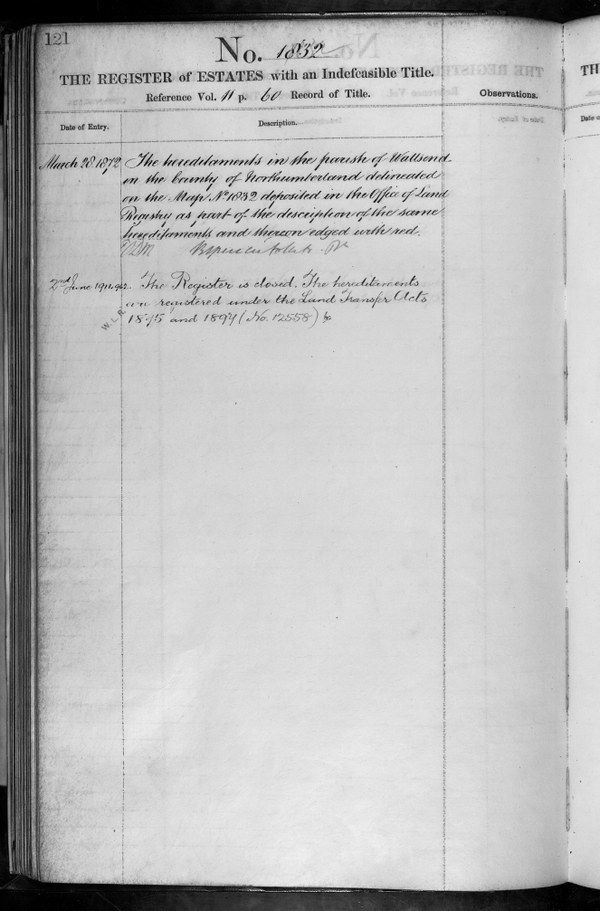 121
No. 1832
THE REGISTER of ESTATES with an Indefeasible Title.
Reference Vol. 11 p. 60 Record of Title.
Observations.
Date of Entry.
Description.
March 28 1872 The hereditaments in the parish of Wallsend
in the County of Northumberland delineated
on the Map No 1832 deposited in the Office of Land
Registry as part of the description of the same
hereditaments and thereon edged with red.
2nd June 1911 The Register is closed. The hereditaments
are registered under the Land Transfer Acts
W.L.R.
1875 and 1897 (No. 12558)
TH
Date o